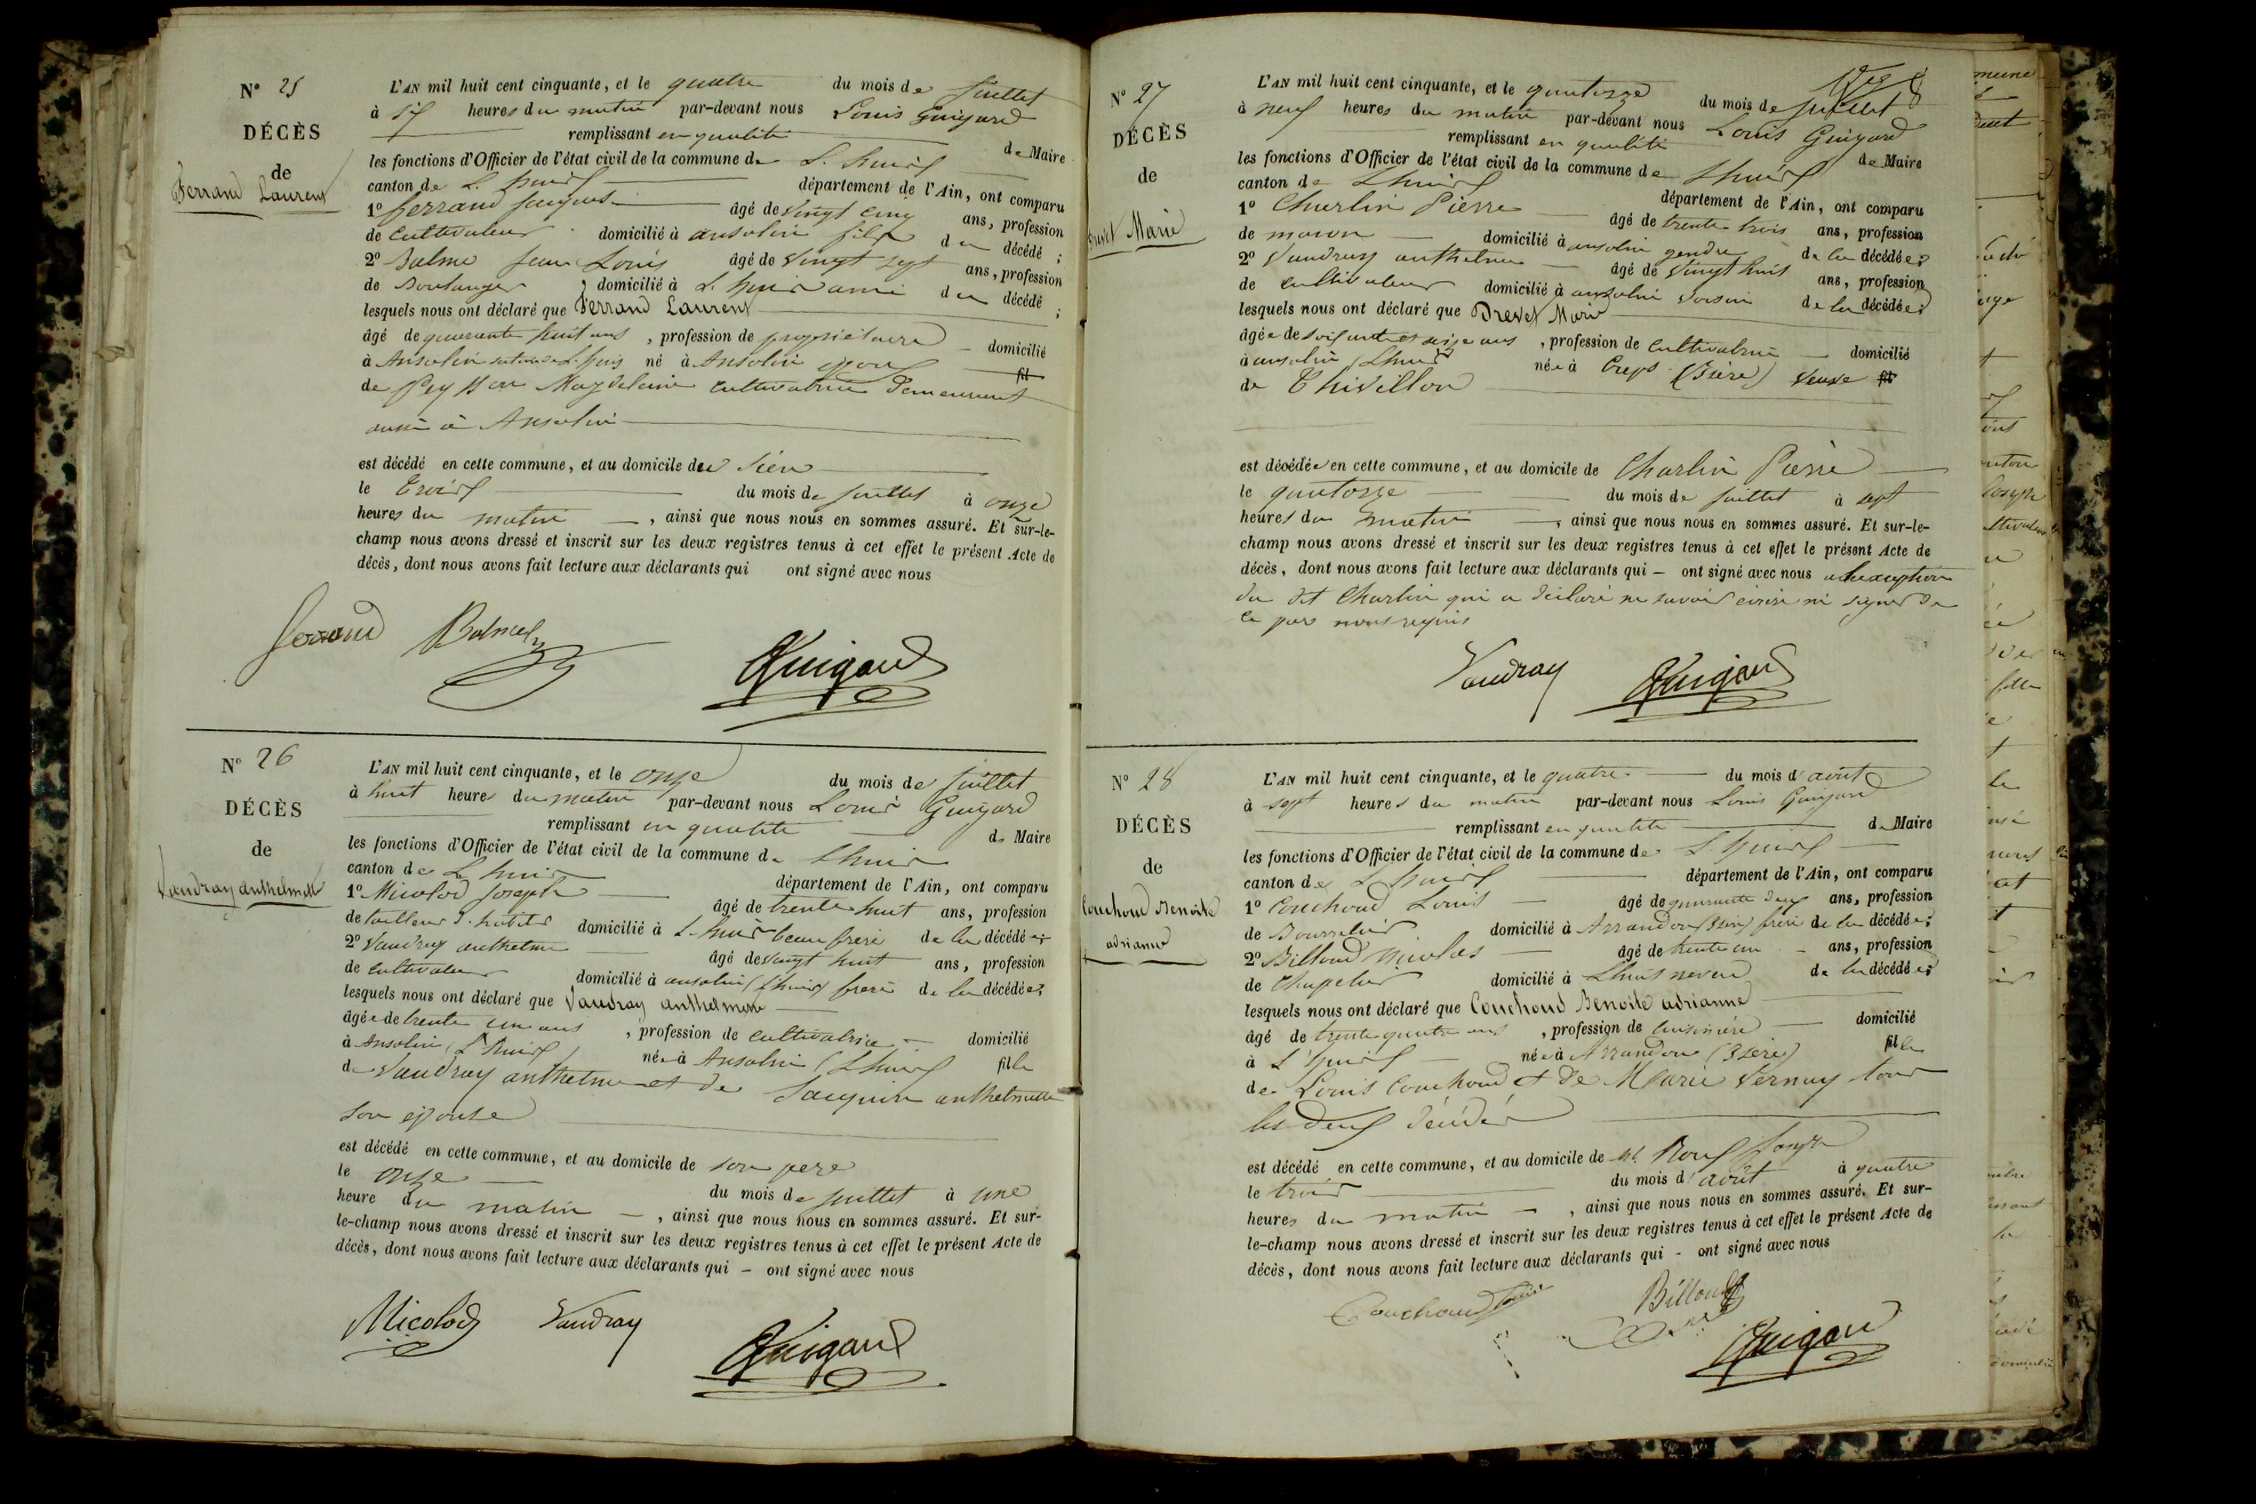 N° 25
DÉCÈS
de
Ferrand Laurent
L'AN mil huit cent cinquante, et le quatre du mois de juillet
à six heures du matin par-devant nous Louis Guigard
remplissant en qualité de Maire
les fonctions d'Officier de l'état civil de la commune de L'huis
canton de L'huis département de l'Ain, ont comparu
1° ferrand jacques âgé de vingt cinq ans, profession
de cultivateur domicilié à ansolin fils du décédé ;
2° Balme jean Louis âgé de vingt sept ans, profession
de Boulanger domicilié à L'huis ami du décédé ;
lesquels nous ont déclaré que Ferrand Laurent
âgé de quarante huit ans, profession de propriétaire domicilié
à Ansolin né à Ansolin époux fil
de Magdeleine cultivatrice demeurant
aussi à Ansolin
est décédé en cette commune, et au domicile du sien
le trois du mois de juillet à onze
heures du matin, ainsi que nous nous en sommes assuré. Et sur-le-
champ nous avons dressé et inscrit sur les deux registres tenus à cet effet le présent Acte de
décès, dont nous avons fait lecture aux déclarants qui ont signé avec nous
ferrand Balme Guigard
N° 26
DÉCÈS
de
Vaudray anthelmette
L'AN mil huit cent cinquante, et le onze du mois de juillet
à huit heures du matin par-devant nous Louis Guigard
remplissant en qualité de Maire
les fonctions d'Officier de l'état civil de la commune de Lhuis
canton de Lhuis département de l'Ain, ont comparu
1° Micolod joseph âgé de trente huit ans, profession
de tailleur d'habits domicilié à L'huis beau frere de la décédée ;
2° Vaudray anthelme âgé de vingt huit ans, profession
de cultivateur domicilié à ansolin (Lhuis) frere de la décédée ;
lesquels nous ont déclaré que Vaudray anthelmette
âgée de trente un ans, profession de cultivatrice domicilié
à Ansolin (L'huis) née à Ansolin (Lhuis) fille
de Vaudray anthelme et de anthelmette
son épouse
est décédé en cette commune, et au domicile de son pere
le onze du mois de juillet à une
heure du matin, ainsi que nous nous en sommes assuré. Et sur-
le-champ nous avons dressé et inscrit sur les deux registres tenus à cet effet le présent Acte de
décès, dont nous avons fait lecture aux déclarants qui – ont signé avec nous
Micolod Vaudray Guigard
N° 27
DÉCÈS
de
Drevet Marie
L'AN mil huit cent cinquante, et le quatorze du mois de juillet
à neuf heures du matin par-devant nous Louis Guigard
remplissant en qualité de Maire
les fonctions d'Officier de l'état civil de la commune de Lhuis
canton de Lhuis département de l'Ain, ont comparu
1° Charlin Pierre âgé de trente trois ans, profession
de macon domicilié à ansolin gendre de la décédée ;
2° Vaudray anthelme âgé de vingt huit ans, profession
de cultivateur domicilié à ansolin voisin de la décédée ;
lesquels nous ont déclaré que Drevet Marie
âgée de soixante et seize ans, profession de cultivatrice domicilié
à ansolin (Lhuis) née à Creys (Isère) veuve fil
de Thivillon
est décédée en cette commune, et au domicile de Charlin Pierre
le quatorze du mois de juillet à sept
heures du matin, ainsi que nous nous en sommes assuré. Et sur-le-
champ nous avons dressé et inscrit sur les deux registres tenus à cet effet le présent Acte de
décès, dont nous avons fait lecture aux déclarants qui – ont signé avec nous à l'exception
du dit Charlin qui a déclaré ne savoir écrire ni signer de
ce par nous requis
Vaudray Guigard
N° 28
DÉCÈS
de
Couchoud Benoite
adrianne
L'AN mil huit cent cinquante, et le quatre du mois d'août
à sept heures du matin par-devant nous Louis Guigard
remplissant en qualité de Maire
les fonctions d'Officier de l'état civil de la commune de L'huis
canton de L'huis département de l'Ain, ont comparu
1° Couchoud Louis âgé de quarante deux ans, profession
de Bourrelier domicilié à Arrandon (Isère) frère de la décédée ;
2° Billoud Nicolas âgé de trente un ans, profession
de Chapelier domicilié à Lhuis neveu de la décédée ;
lesquels nous ont déclaré que Couchoud Benoite adrianne
âgé de trente quatre ans, profession de cuisinière domicilié
à L'huis née à Arrandon (Isère) fille
de Louis Couchoud et de Marie Vernay tous
les deux décédés
est décédé en cette commune, et au domicile de Mr Roux joseph
le trois du mois d'août à quatre
heures du matin, ainsi que nous nous en sommes assuré. Et sur-
le-champ nous avons dressé et inscrit sur les deux registres tenus à cet effet le présent Acte de
décès, dont nous avons fait lecture aux déclarants qui - ont signé avec nous
Couchoud Billoud
Guigard